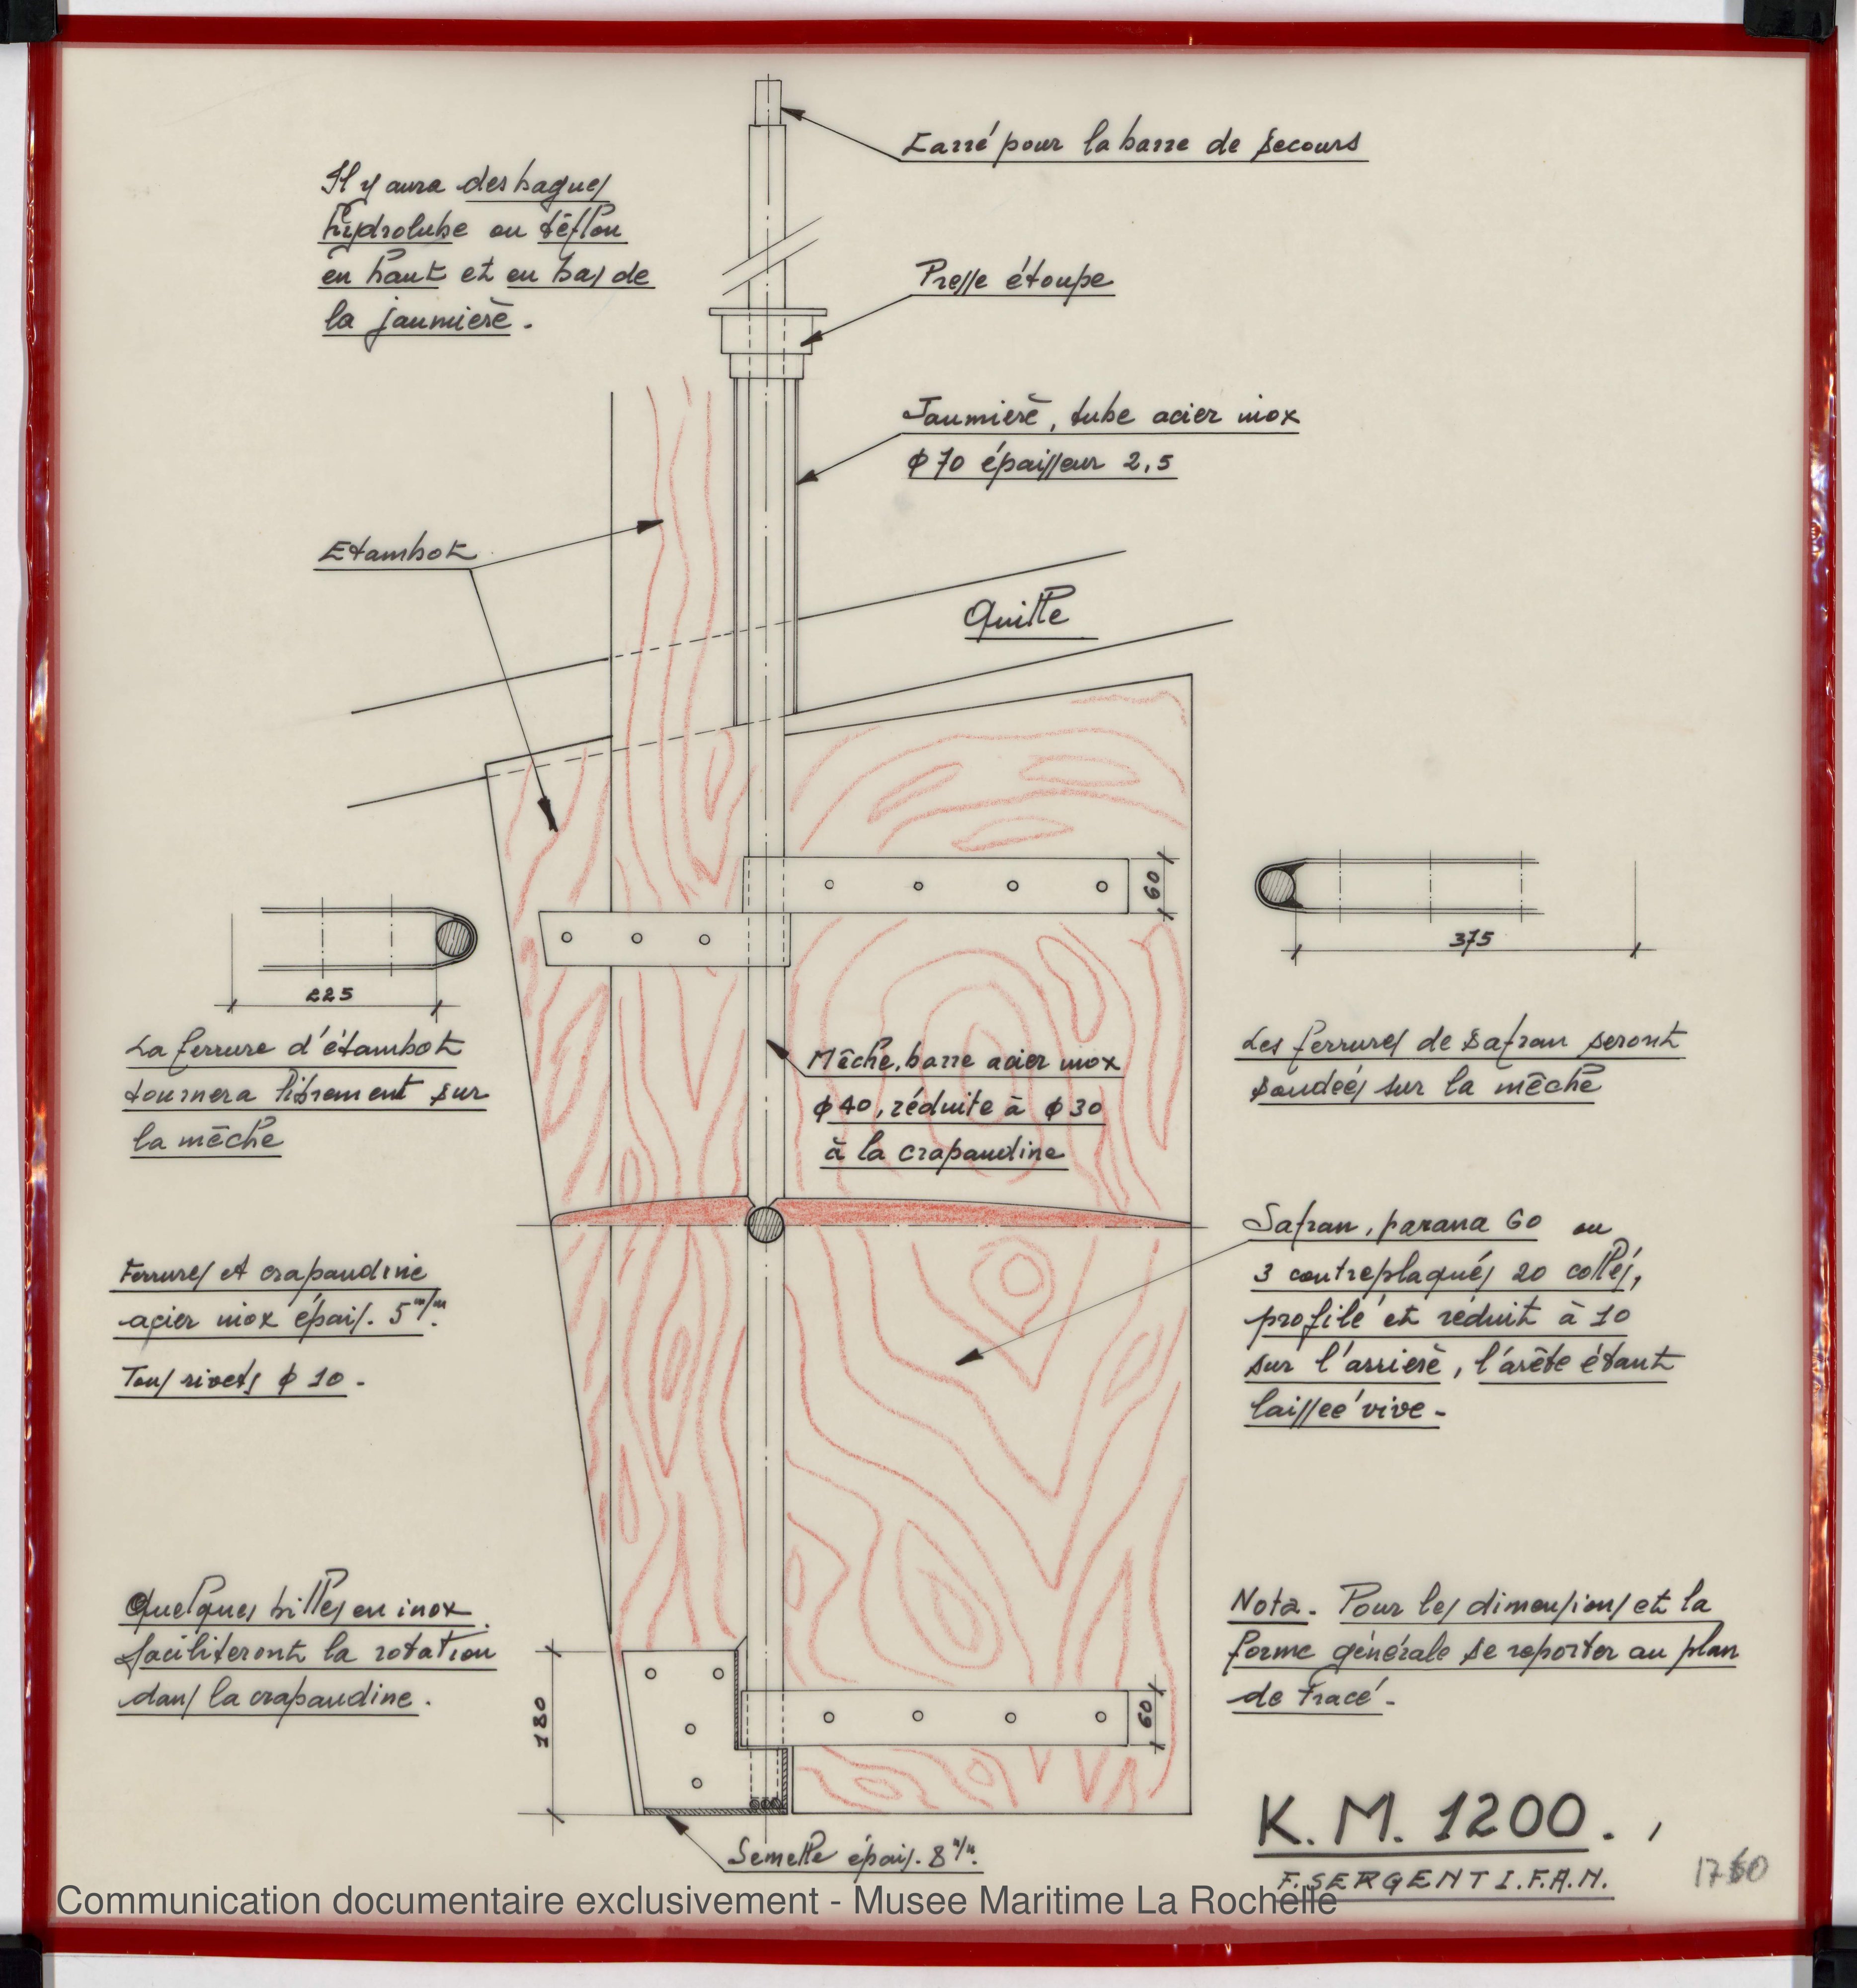 Carré pour la barre de secours
Il y aura des bagues
hydrolube ou téflon
en haut et en bas de
la jaumière.
Presse étoupe
Jaumière, tube acier inox
ϕ 70 épaisseur 2,5
Etambot
Quille
60
225
375
La ferrure d'étambot
tournera librement sur
la mèche
Les ferrures de safran seront
soudées sur la mèche
Mèche, barre acier inox
ϕ 40, réduite à ϕ 30
à la crapaudine
Ferrures et crapaudine
acier inox épais. 5 m/m.
Tous rivets ϕ 10 -
Safran, parana 60 ou
3 contreplaqués 20 collés,
profilé et réduit à 10
sur l'arrière, l'arête étant
laissée vive -
Quelques billes en inox
faciliteront la rotation
dans la crapaudine.
Nota - Pour les dimensions et la
forme générale se reporter au plan
de tracé -
180
60
Semelle épais. 8 m/m.
K.M. 1200.
F. SERGENT I.F.A.N.
Communication documentaire exclusivement - Musee Maritime La Rochelle